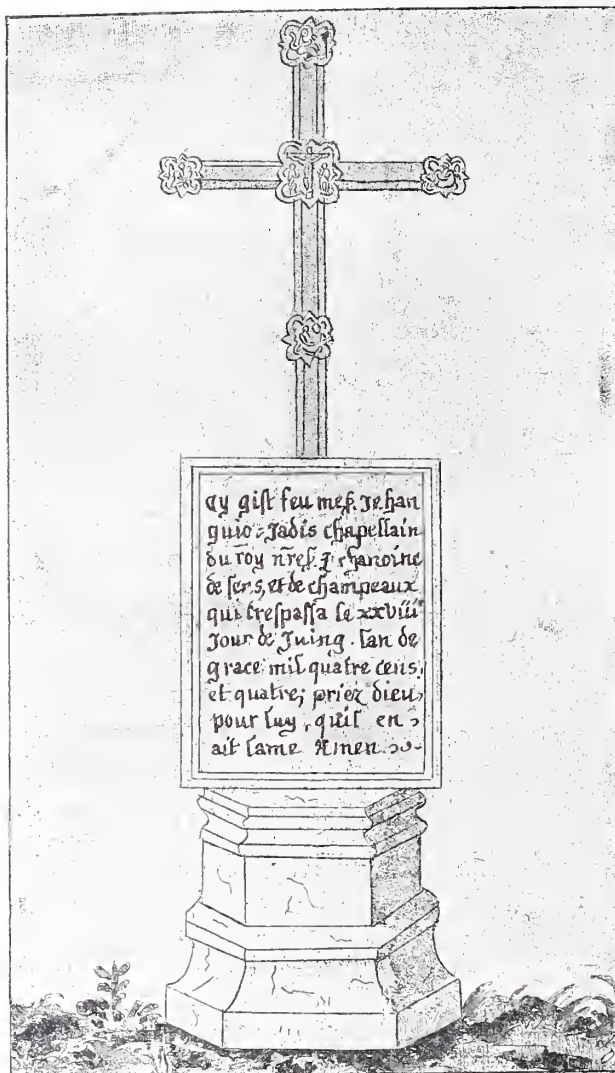 Cy gist feu mess. Jehan
guio. Jadis chapellain
du roy nr̄e s. & chanoine
de sens, et de champeaux
qui trespassa le xxviii
jour de Juing. lan de
grace mil quatre cens,
et quatre; priez dieu,
pour luy, quil en
ait lame Amen.